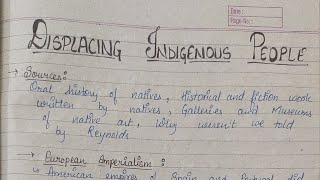 Date:
Page No.:
DISPLACING INDIGENOUS PEOPLE
→ Sources:
Oral history of natives, Historical and fiction work
written by natives, Galleries and Museums
of native art, Why weren't we told
by Reynolds
→ European Imperialism:
→ American empires of Spain and Portugal did